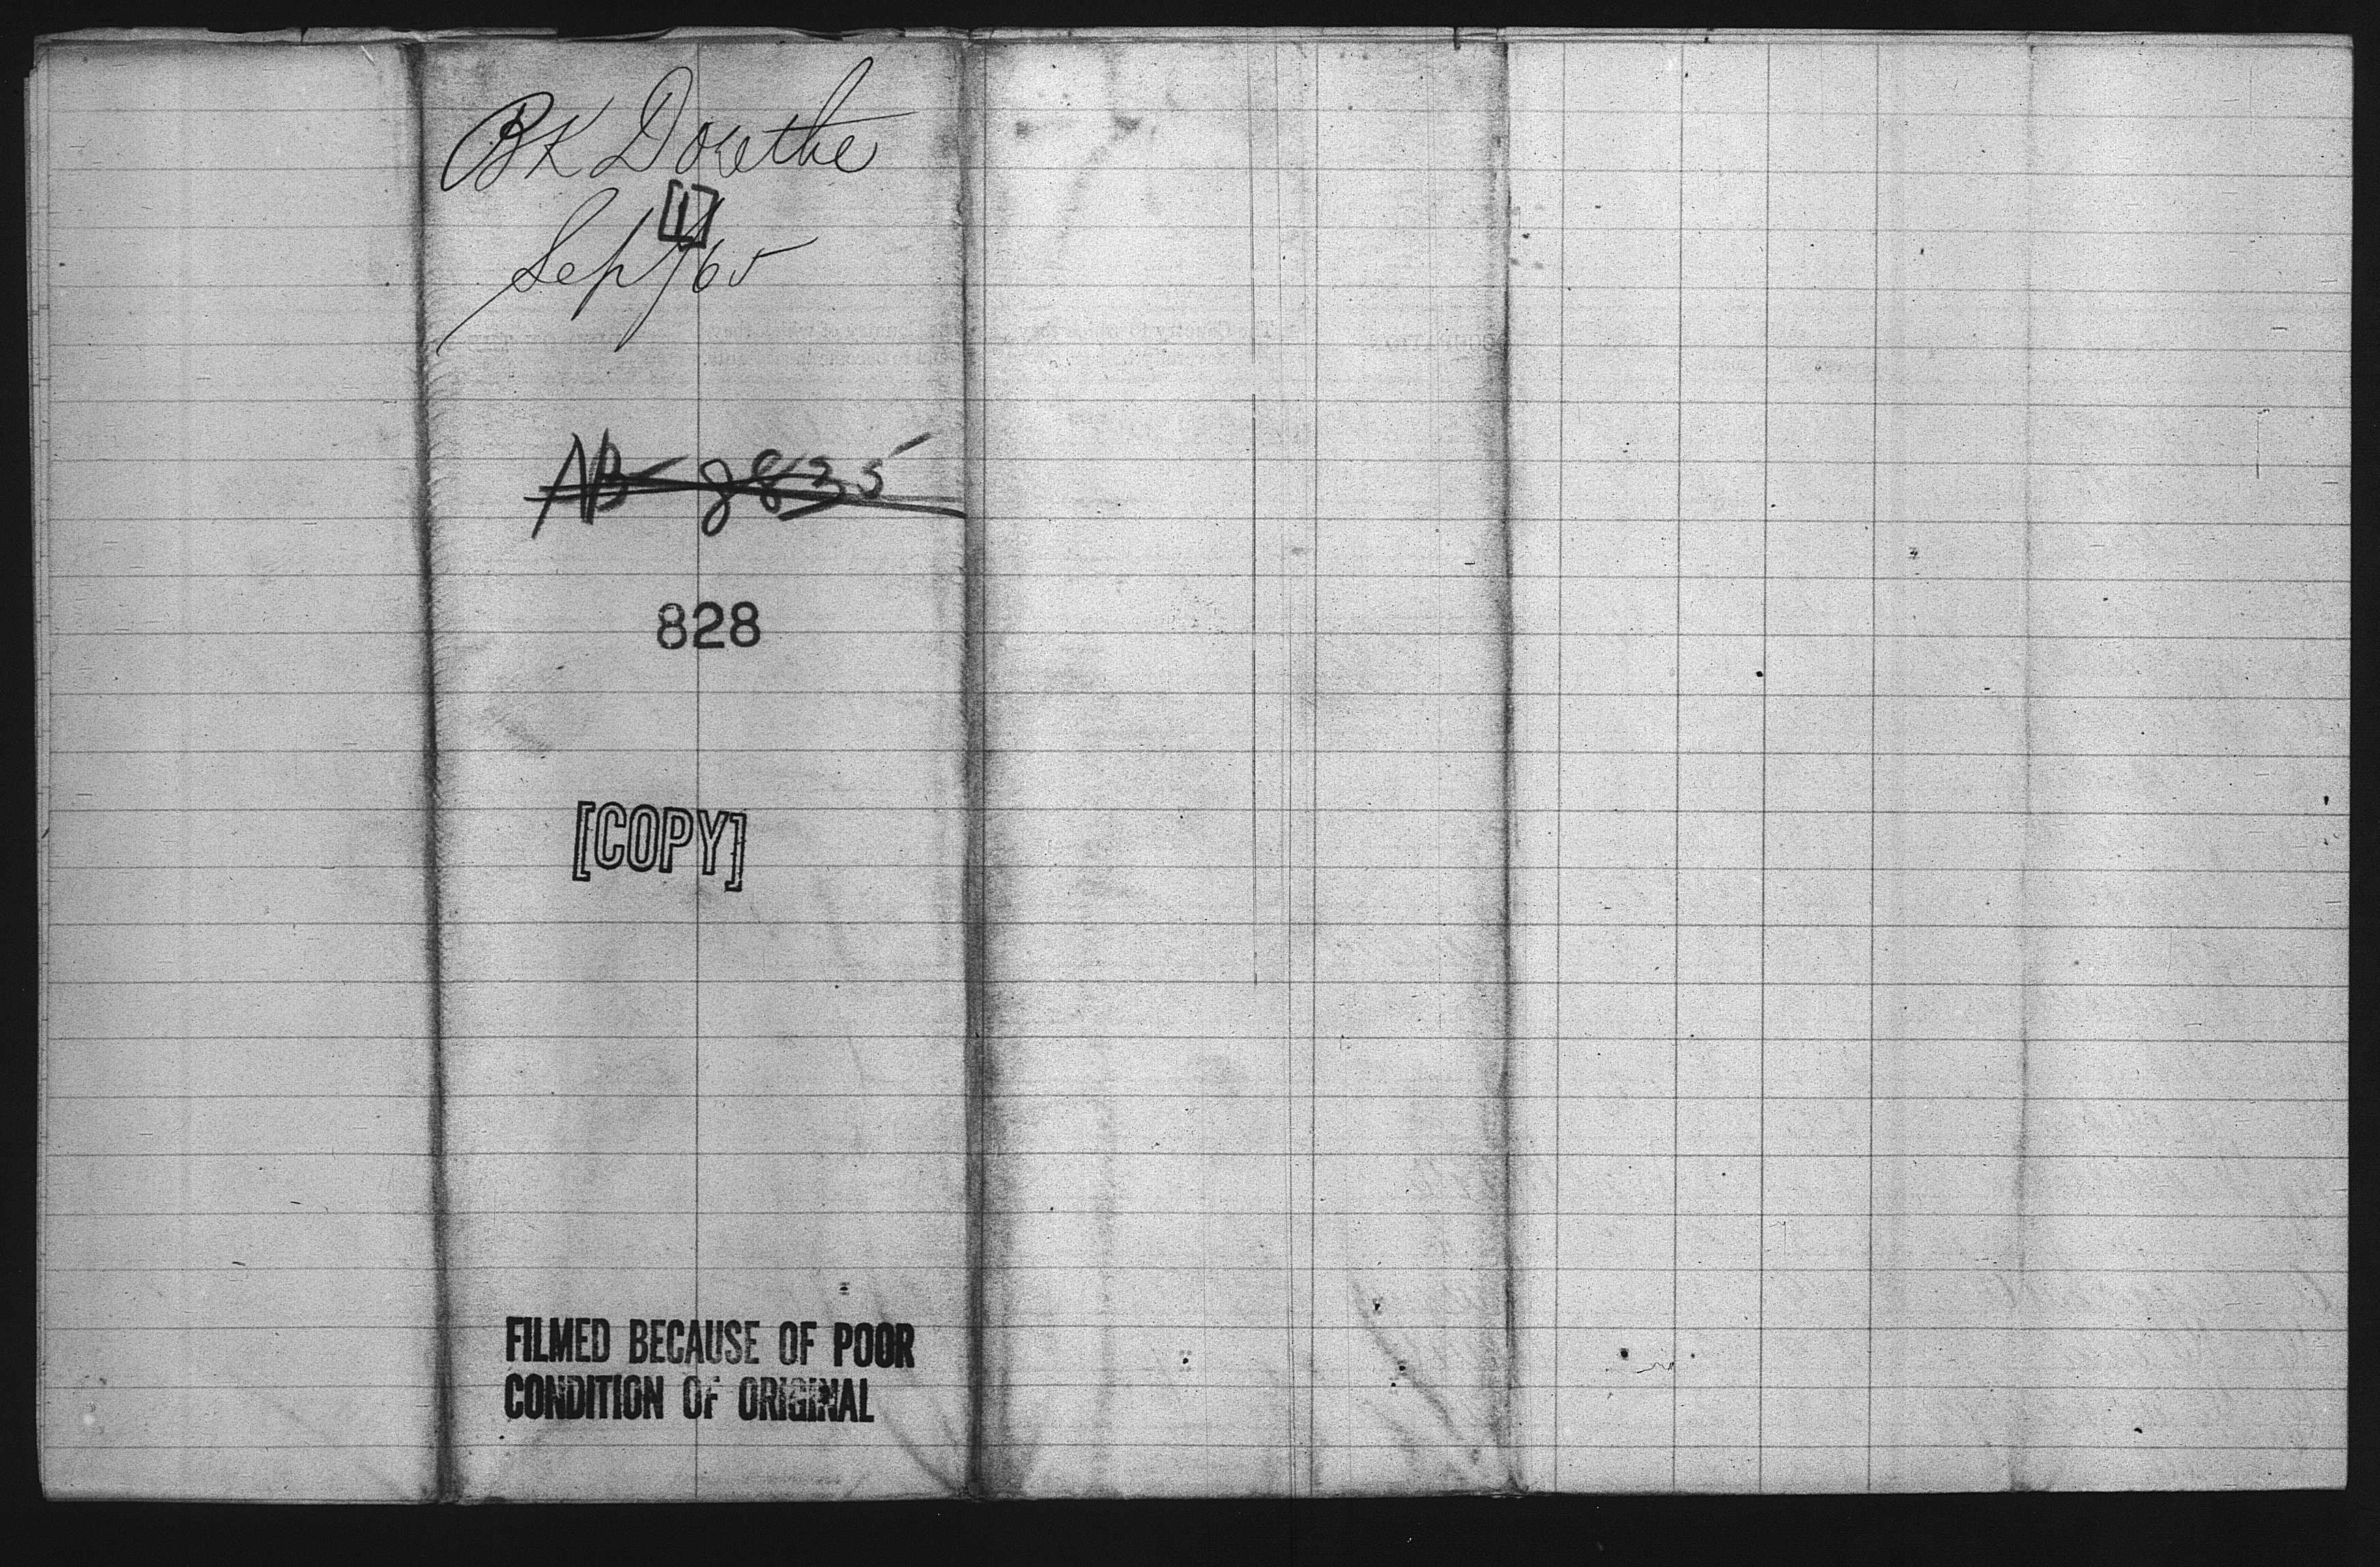 BK Dorethe
[1]
Sep/65
828
[COPY]
FILMED BECAUSE OF POOR
CONDITION OF ORIGINAL